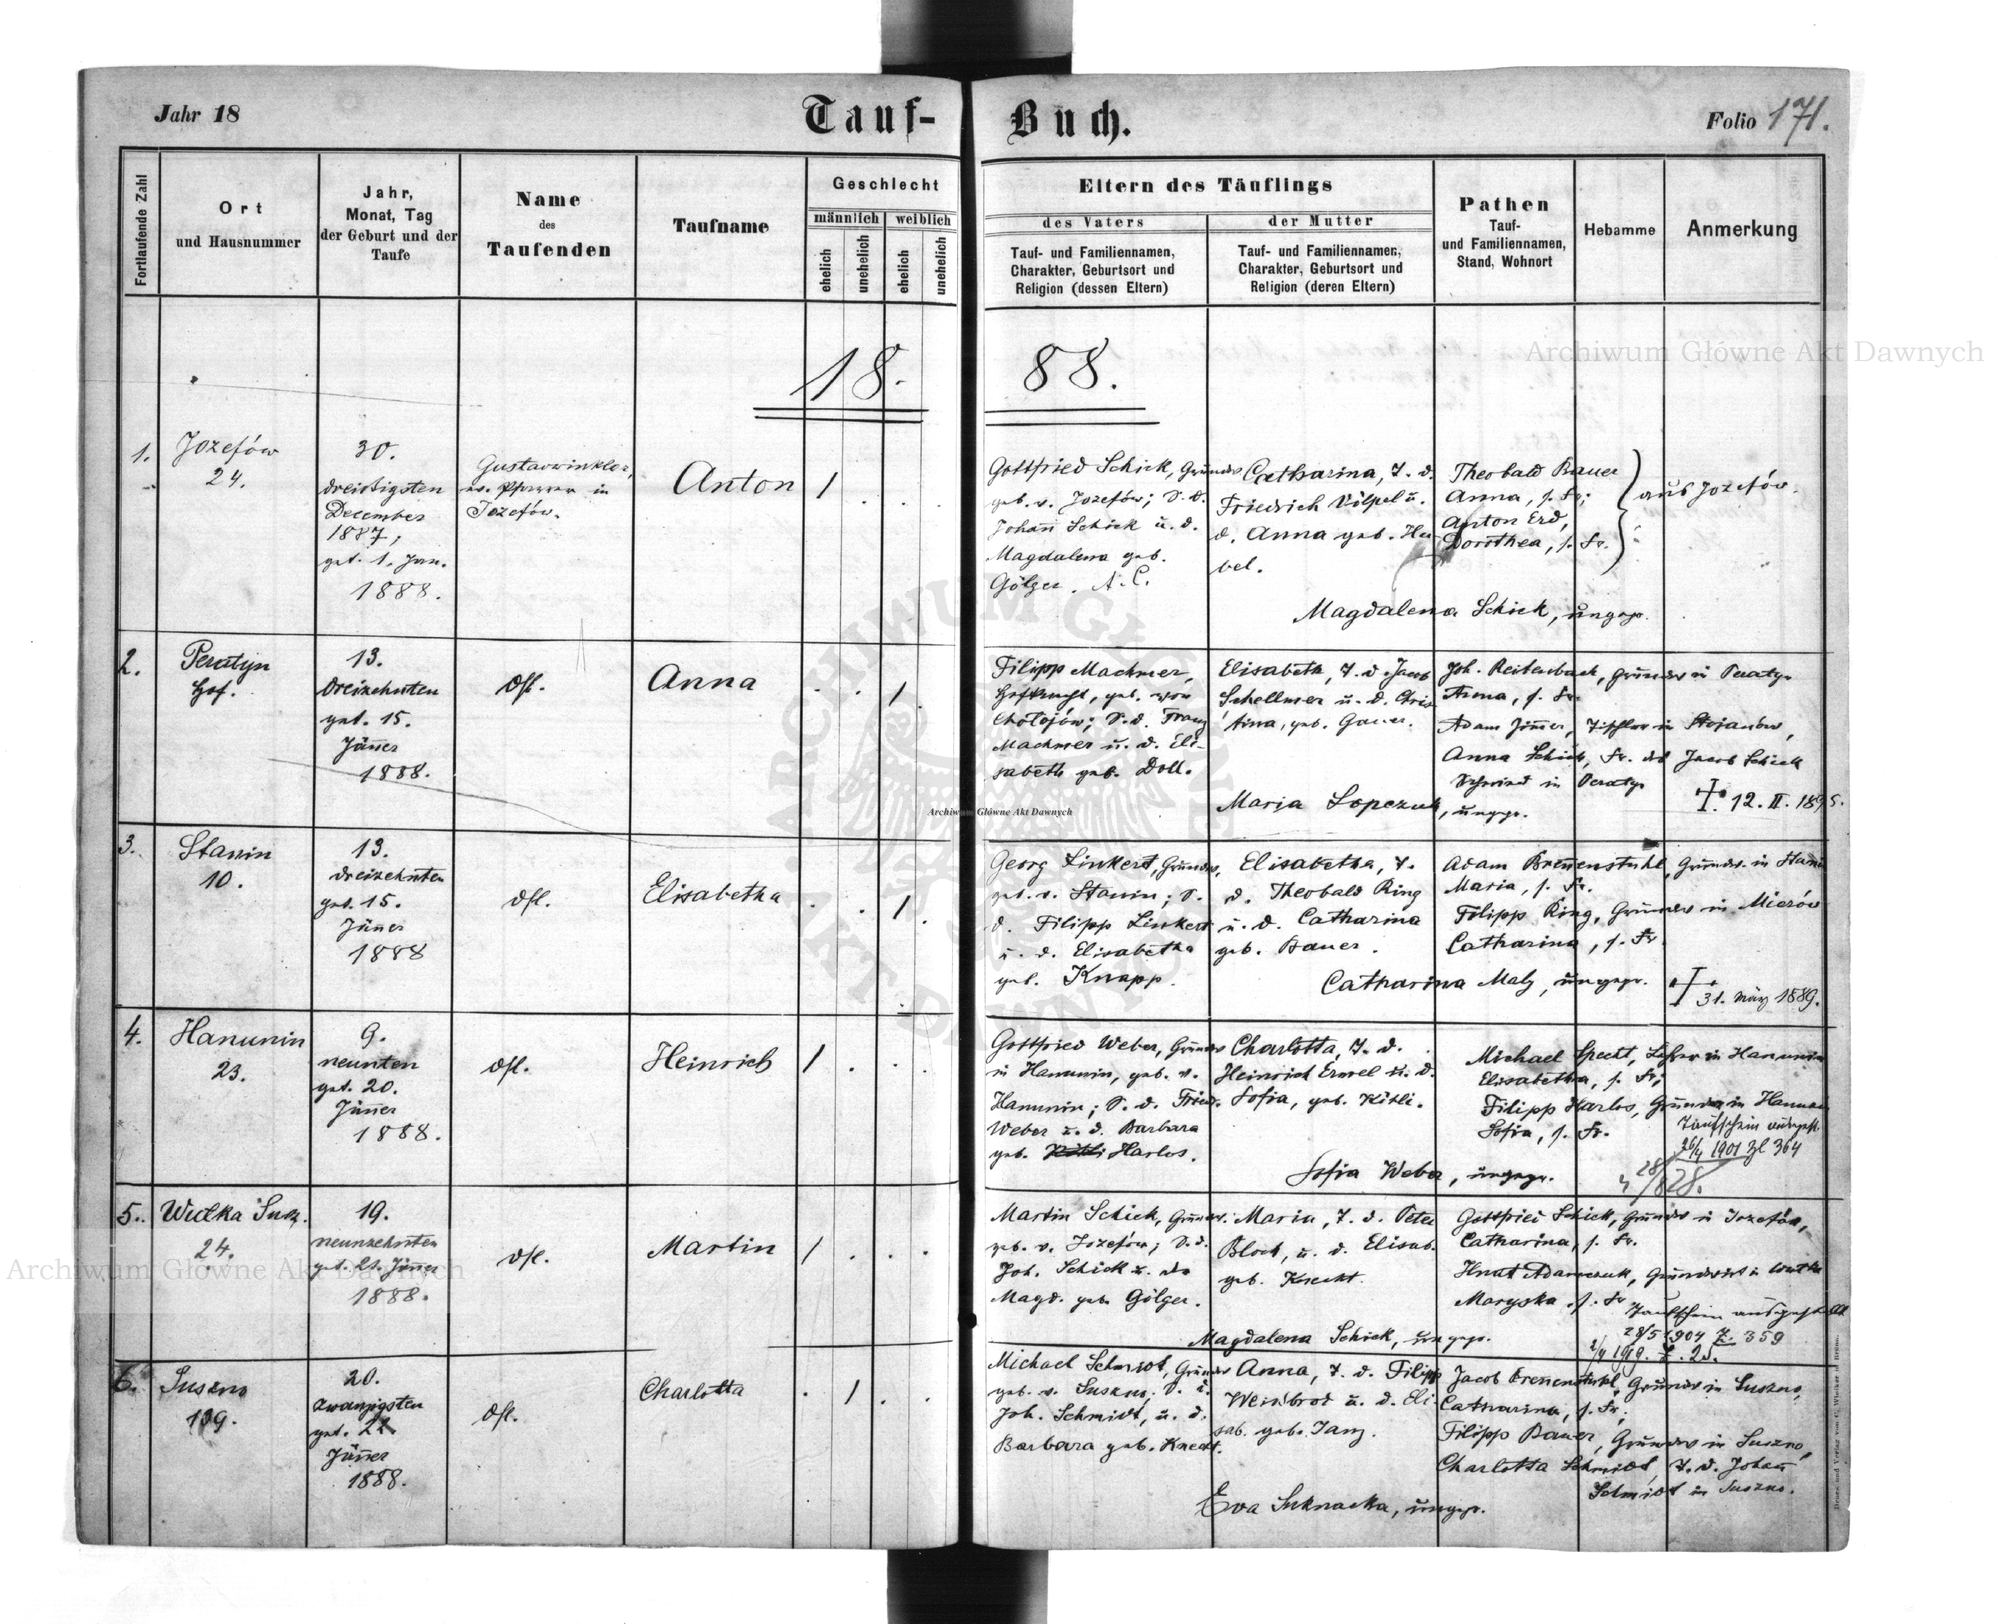 Jahr 18
Tauf-
Buch.
Folio 171.
Fortlaufende Zahl
Ort
und Hausnummer
Jahr,
Monat, Tag
der Geburt und der
Taufe
Name
des
Taufenden
Taufname
Geschlecht
männlich
weiblich
ehelich
unehelich
ehelich
unehelich
Eltern des Täuflings
des Vaters
Tauf- und Familiennamen,
Charakter, Geburtsort und
Religion (dessen Eltern)
der Mutter
Tauf- und Familiennamen,
Charakter, Geburtsort und
Religion (deren Eltern)
Pathen
Tauf-
und Familiennamen,
Stand, Wohnort
Hebamme
Anmerkung
18.
88.
1.
Jozefów
24.
30.
dreißigsten
December
1887,
get. 1. Jan.
1888.
ev. Pfarrer in
Jozefów.
Anton
1 . . .
Gottfried Schick, Grundw
geb. v. Jozefów; S. d.
Johan̄ Schick u. d.
Magdalena geb.
Gölger. A. C.
Catharina, T. d.
Friedrich Völpel u.
d. Anna geb. Hu-
bel.
Theobald Bauer
Anna, s. Fr;
Anton Erd,
Dorothea, s. Fr.
aus Jozefów.
Magdalena Schick, ungepr.
2.
Peratyn
Hof.
13.
dreizehnten
get. 15.
Jän̄er
1888.
dsl.
Anna
. . 1 .
Filipp Machmer,
Hofknecht, geb. von
Cholojów; S. d. Franz
Machmer u. d. Eli-
sabeth geb. Doll.
Elisabeth, T. d Jacob
Schellmer u. d. Chris
tina, geb. Gauer.
Joh. Reitenbach, Grundw in Peratyn
Anna, s. Fr.
Adam Zim̄er, Tischler in Stojanów,
Anna Schick, Fr. des Jacob Schick
Schmied in Peratyn
Maria Lopczuk, ungepr.
12. II. 1895.
3.
Stanin
10.
13.
dreizehnten
get. 15.
Jän̄er
1888
dsl.
Elisabetha
. . 1 .
Georg Linkert, Grundw,
geb. v. Stanin; S.
d. Filipp Linkert
u. d. Elisabetha
geb. Knapp.
Elisabetha, T.
d. Theobald Ring
u. d. Catharina
geb. Bauer.
Adam Bren̄enstuhl, Grundw. in Stanin
Maria, s. Fr.
Filipp Ring, Grundw in Mierów
Catharina, s. Fr.
Catharina Maly, ungepr.
31. März 1889.
4.
Hanunin
23.
9.
neunten
get. 20.
Jän̄er
1888.
dsl.
Heinrich
1 . . .
Gottfried Weber, Grundw
in Hanunin, geb. v.
Hanunin; S. d. Fried.
Weber u. d. Barbara
geb. Harlos.
Charlotta, T. d.
Heinrich Ermel u. d.
Sofia, geb. Kitli.
Michael Specht, Lehrer in Hanunin
Elisabetha, s. Fr;
Filipp Harlos, Grundw in Hanunin
Sofia, s. Fr.
Taufschein ausgest.
26/4 1901 Zl 364
Sofia Weber, ungepr.
28/4 828.
5.
Wulka Susz.
24.
19.
neunzehnten
get. 21. Jän̄er
1888.
dsl.
Martin
1 . . .
Martin Schick, Grundw.
geb. v. Jozefów; S. d.
Joh. Schick u. der
Magd. geb. Gölger.
Maria, T. d. Peter
Bloch, u. d. Elisab.
geb. Knecht.
Gottfried Schick, Grundw in Jozefów,
Catharina, s. Fr.
Hnat Adamczuk, Grundwirt in Wulka
Maryska, s. Fr
Taufschein ausgestellt
28/5 1904 Z. 359
Magdalena Schick, ungepr.
2/4 1919. Z. 25.
6.
Suszno
139.
20.
zwanzigsten
get. 22
Jän̄er
1888.
dsl.
Charlotta
. 1 . .
Michael Schmidt, Grundw
geb. v. Suszno; S. d.
Joh. Schmidt, u. d.
Barbara geb. Knecht.
Anna, T. d. Filipp
Weinbrod u. d. Eli-
sab. geb. Janz.
Jacob Bren̄enstuhl, Grundw in Suszno,
Catharina, s. Fr;
Filipp Bauer, Grundw in Suszno,
Charlotta Schmidt, T. d. Johan̄
Schmidt in Suszno.
Eva Suknacka, ungepr.
Archiwum Główne Akt Dawnych
Archiwum Główne Akt Dawnych
Archiwum Główne Akt Dawnych
ARCHIWUM GŁÓWNE AKT DAWNYCH